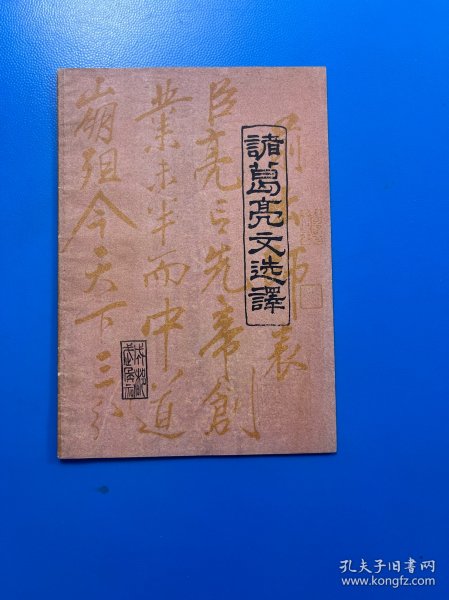 諸葛亮文选譯
前出师表
臣亮言先帝創
業未半而中道
崩殂今天下三分
成都
武侯祠
孔夫子旧书网
www.kongfz.com